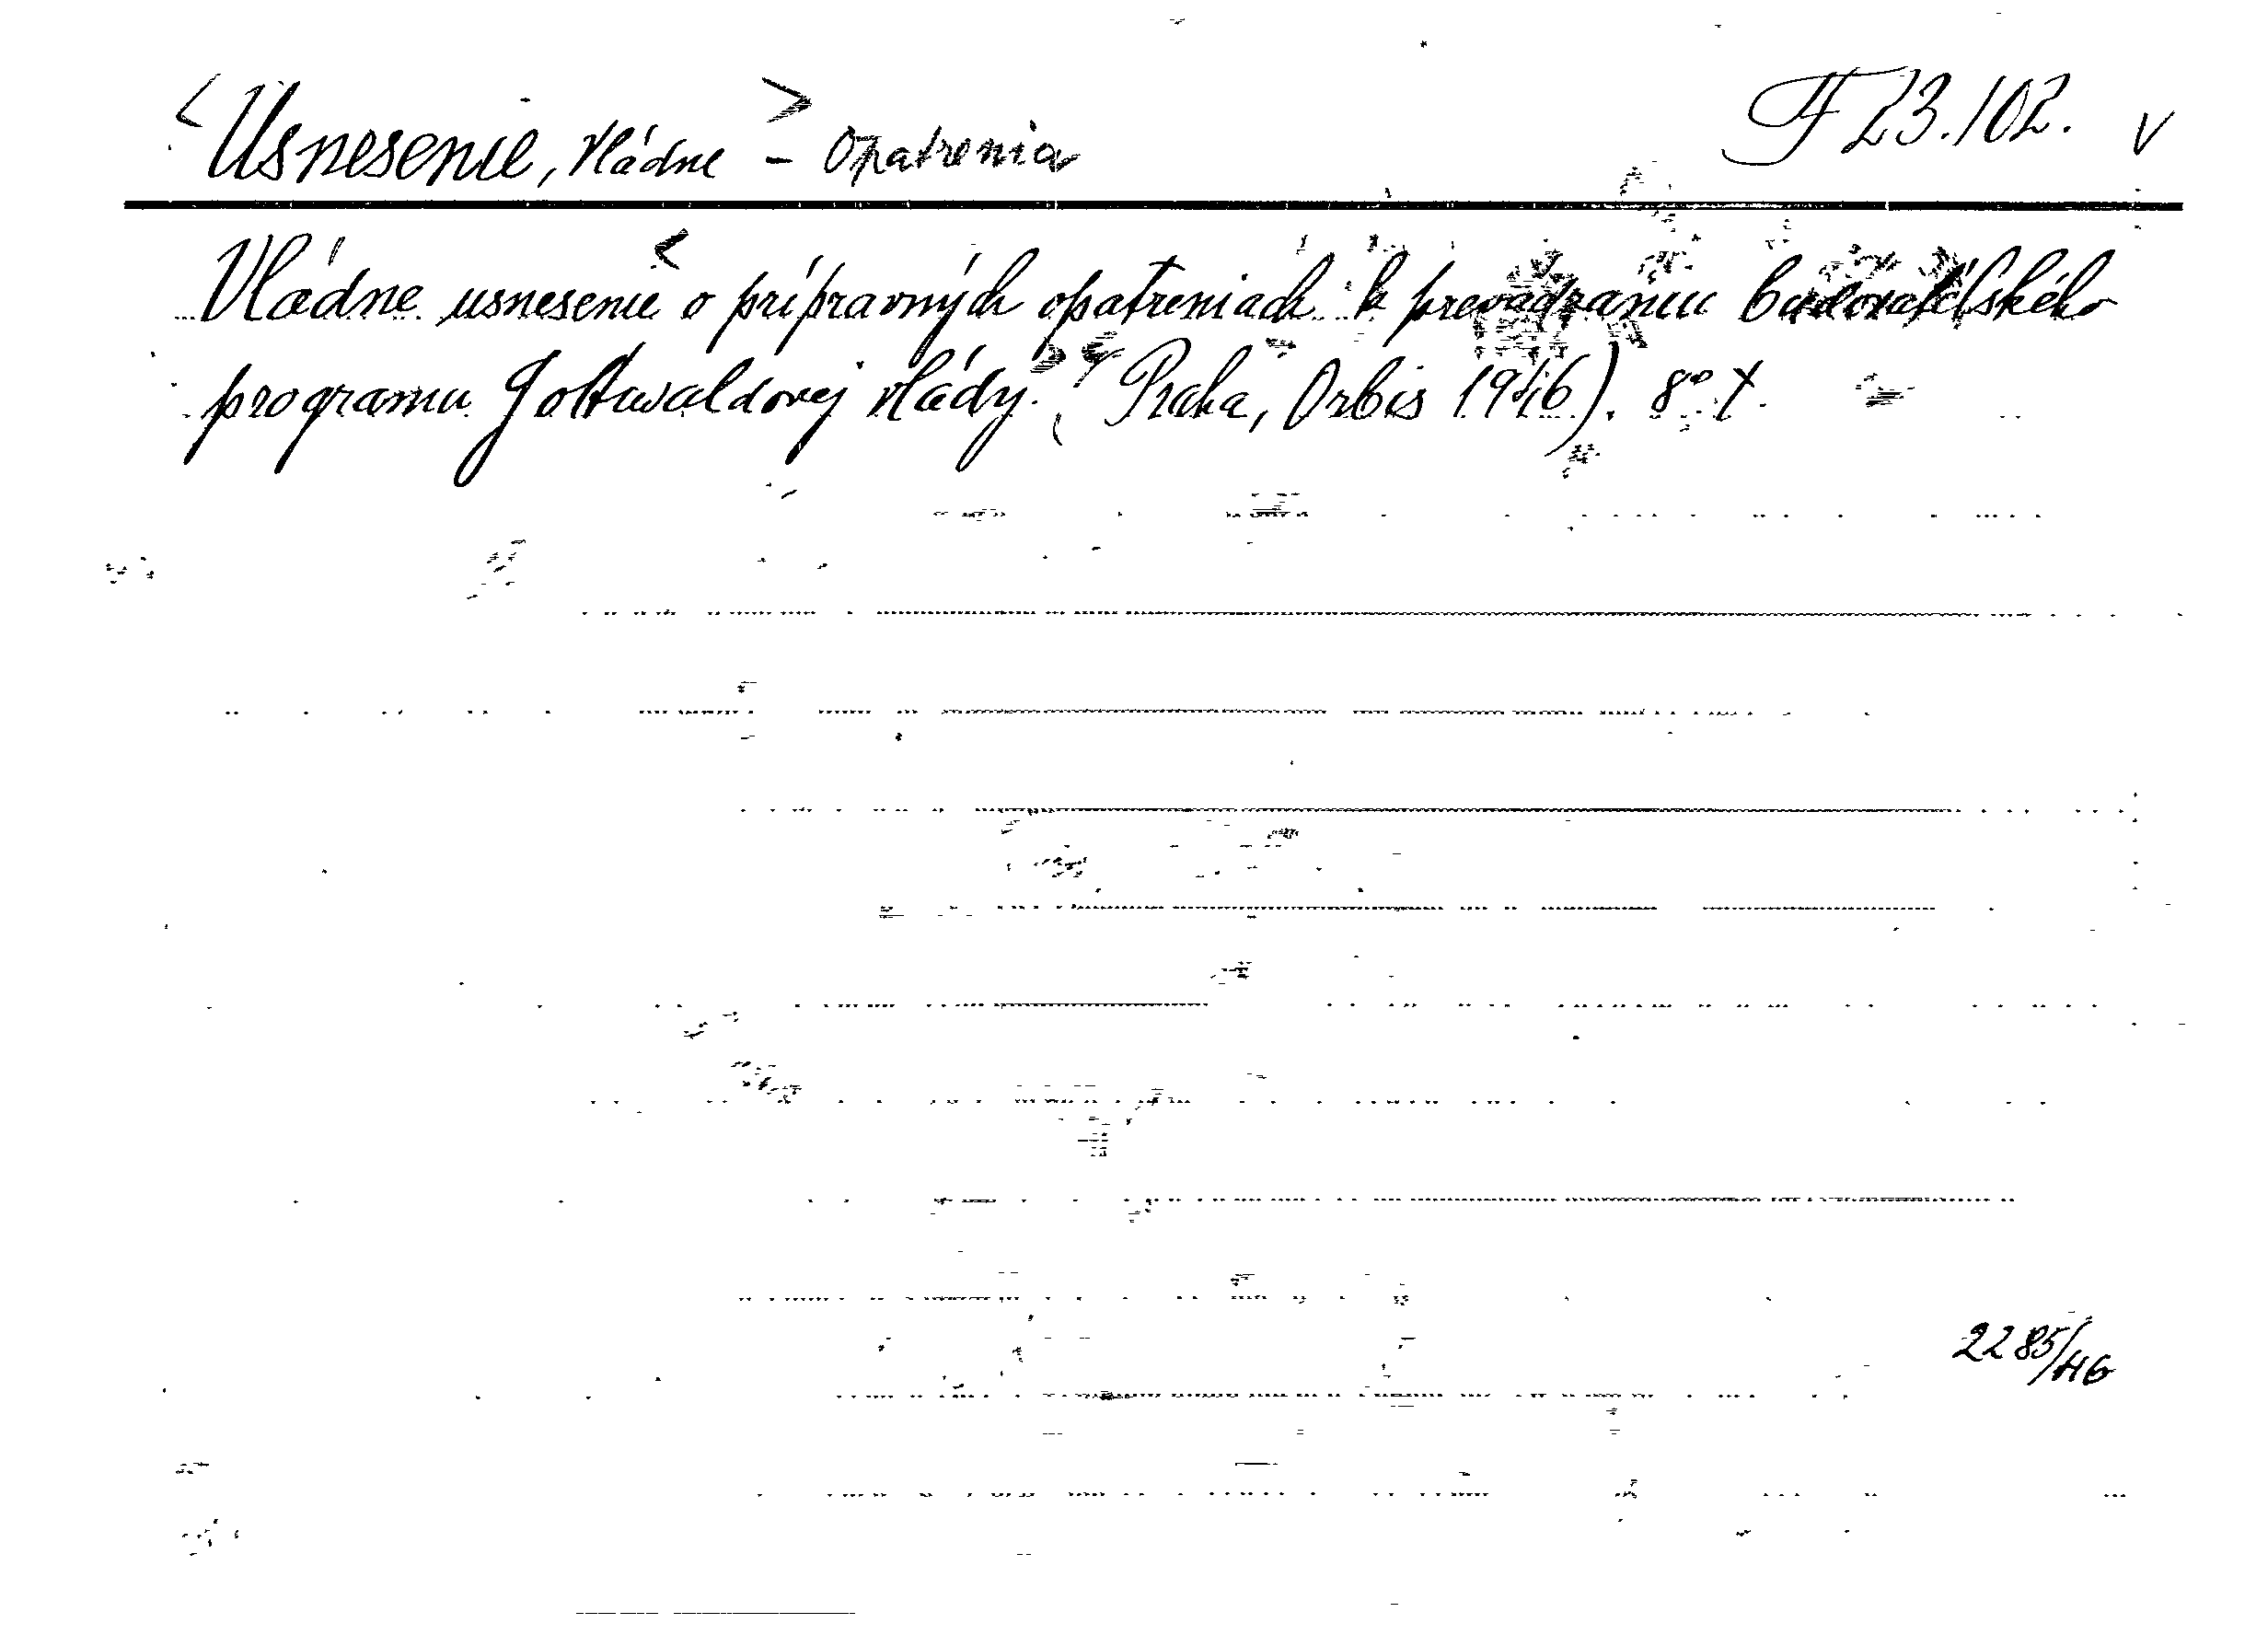 <Usnesenie, vládne> - opatrenia F 23.102. V
Vládne usnesenie o prípravných opatreniach k prevádzaniu budovateľského
programu Gottwaldovej vlády. (Praha, Orbis 1946). 8° t.
2285/46